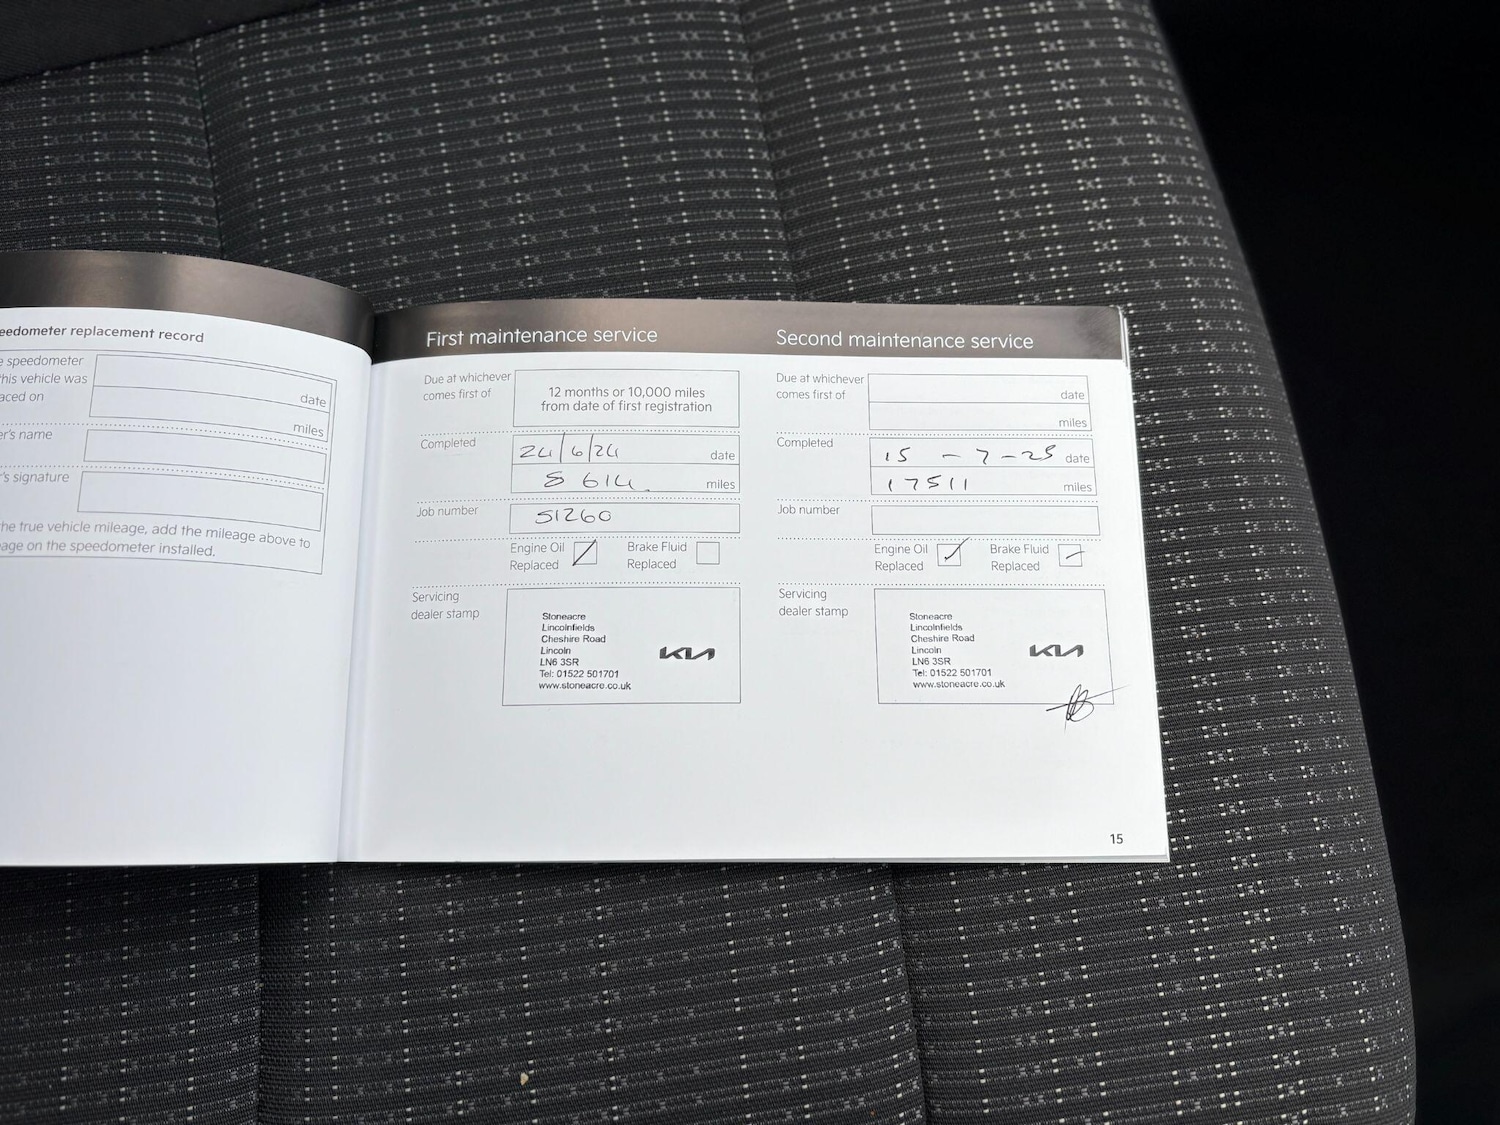 eedometer replacement record
e speedometer
his vehicle was
aced on
date
miles
er's name
's signature
he true vehicle mileage, add the mileage above to
age on the speedometer installed.
First maintenance service
Due at whichever
comes first of
12 months or 10,000 miles
from date of first registration
Completed
24/6/24 date
8 614 miles
Job number
51260
Engine Oil
Replaced
Brake Fluid
Replaced
Servicing
dealer stamp
Stoneacre
Lincolnfields
Cheshire Road
Lincoln
LN6 3SR
Tel: 01522 501701
www.stoneacre.co.uk
KIA
Second maintenance service
Due at whichever
comes first of
date
miles
Completed
15 - 7 - 25 date
17511 miles
Job number
Engine Oil
Replaced
Brake Fluid
Replaced
Servicing
dealer stamp
Stoneacre
Lincolnfields
Cheshire Road
Lincoln
LN6 3SR
Tel: 01522 501701
www.stoneacre.co.uk
KIA
15